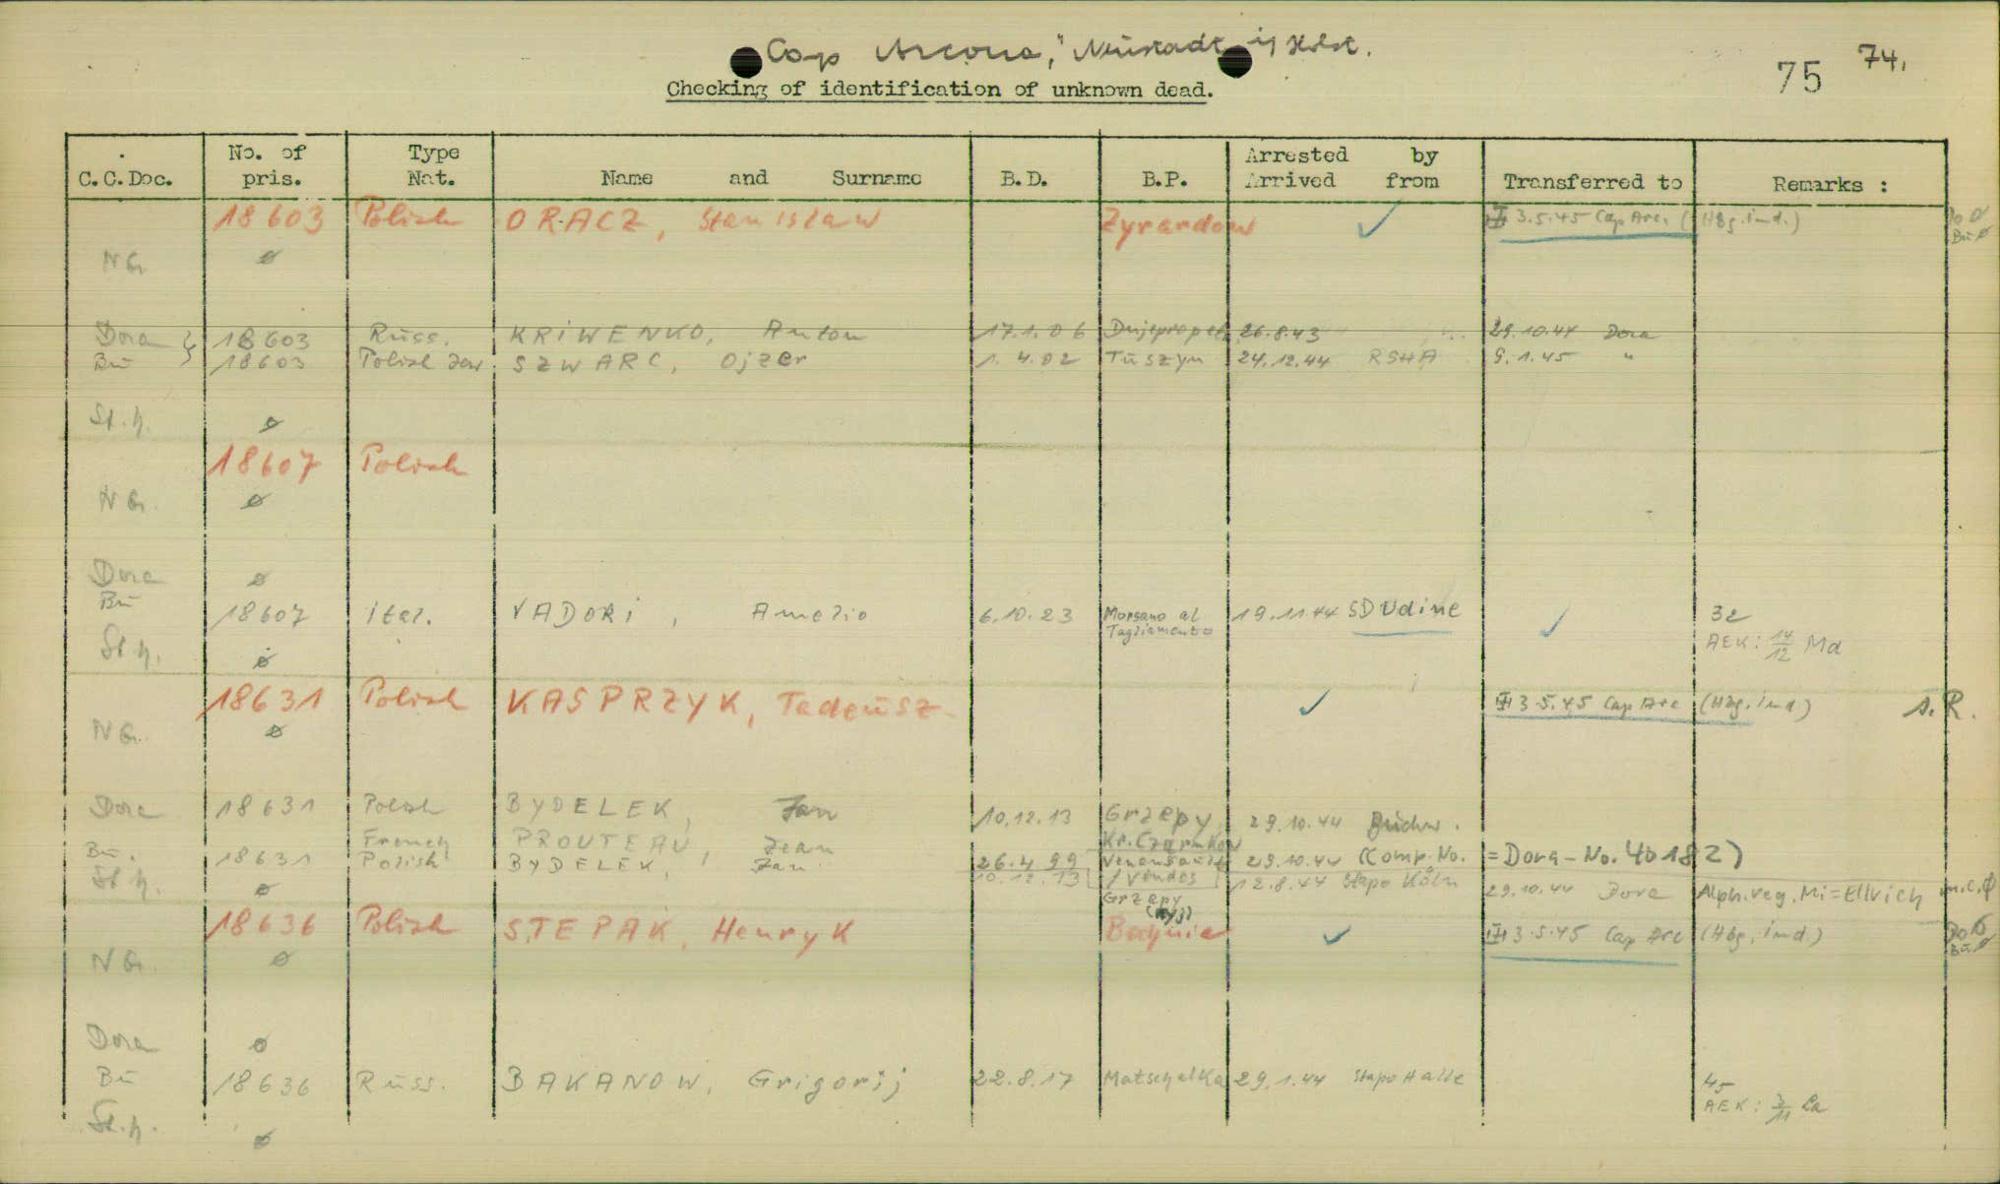 Cap Arcona," Neustadt i/Holst.
75 74.
Checking of identification of unknown dead.
C.C.Doc. No. of pris. Type Nat. Name and Surname B.D. B.P. Arrested by Arrived from Transferred to Remarks :
18603 Polish ORACZ, Stanislaw Zyrardow ✓ 3.5.45 Cap Arc. (Hbg. ind.) Do Ø
Bu Ø
NG. ø
Dora 18603 Russ. KRIWENKO, Anton 17.1.06 Dnjepropet 26.8.43 29.10.44 Dora
Bu 18603 Polish Jew. SZWARC, Ojzer 1.4.02 Tuszyn 24.12.44 RSHA 9.1.45 "
St.h. ø
18607 Polish
NG. ø
Dora ø
Bu 18607 ital. VADORI, Amelio 6.10.23 Morsano al Tagliamento 19.11.44 SD Udine ✓ 32
St.h. ø AEK: 14/12 Md
18631 Polish KASPRZYK, Tadeusz ✓ 3.5.45 Cap Arc (Hbg. ind) s.R.
NG. ø
Dora 18631 Polish BYDELEK, Jan 10.12.13 Grzepy Kr. Czarnkow 29.10.44 Buchw.
French PROUTEAU, Jean 26.4.99 /Vendes 29.10.44 (Comp. No. = Dora-No. 40182)
Bu. 18631 Polish BYDELEK, Jan 10.12.13 Grzepy 12.8.44 Stapo Köln 29.10.44 Dora Alph. reg. Mi=Ellrich m.c.Ø
St.h. ø
18636 Polish STEPAK, Henryk ✓ 3.5.45 Cap Arc (Hbg. ind.) Do Ø
Bu Ø
NG. ø
Dora ø
Bu 18636 Russ. BAKANOW, Grigorij 22.8.17 Matschelka 29.1.44 Stapo Halle 45
AEK: 3/11 La
St.h. ø